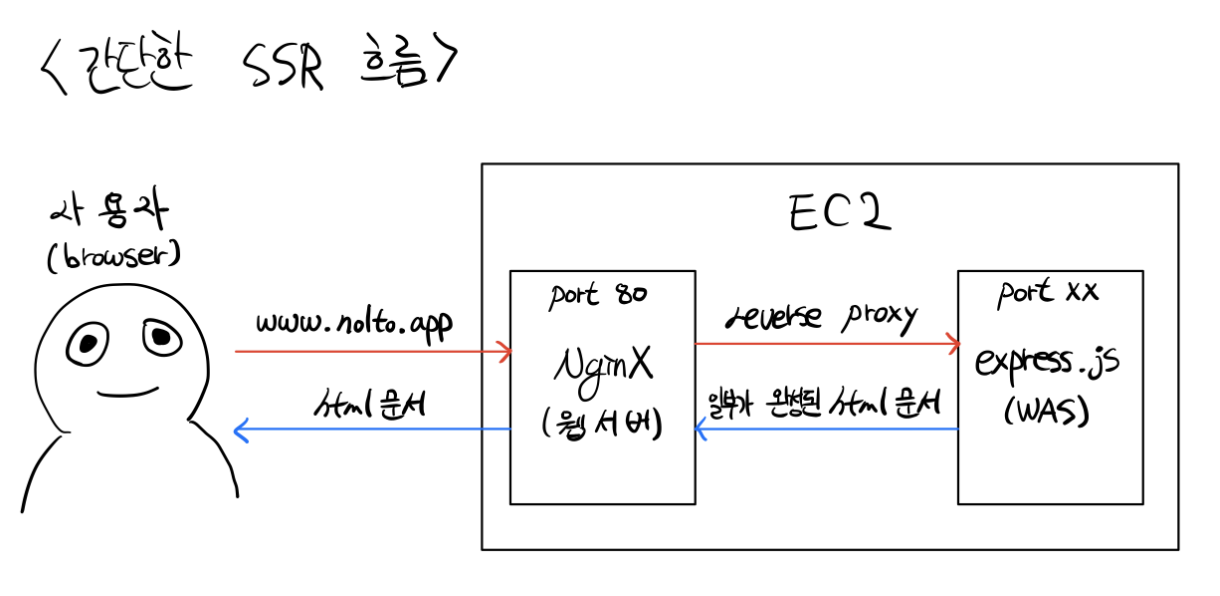 <간단한 SSR 흐름>
사용자
(browser)
www.nolto.app
html 문서
EC2
port 80
NginX
(웹서버)
reverse proxy
일부가 완성된 html 문서
port xx
express.js
(WAS)